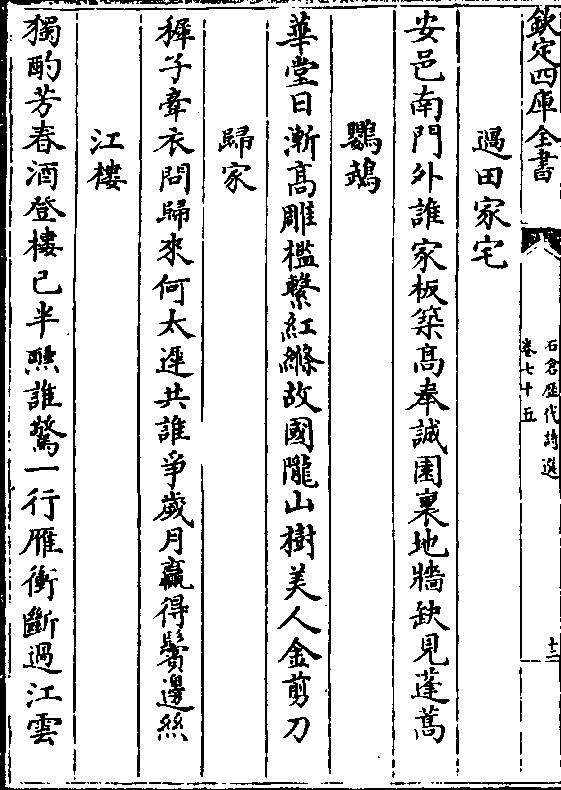 欽定四庫全書
石倉歴代詩選
卷七十五
十二
過田家宅
安邑南門外誰家板築髙奉誠園裏地牆缺見蓬蒿
鸚鵡
華堂日漸髙雕檻繫紅絛故國隴山樹美人金剪刀
歸家
稺子牽衣問歸來何太遲共誰爭歲月贏得鬢邊絲
江樓
獨酌芳春酒登樓已半醺誰驚一行雁衝斷過江雲